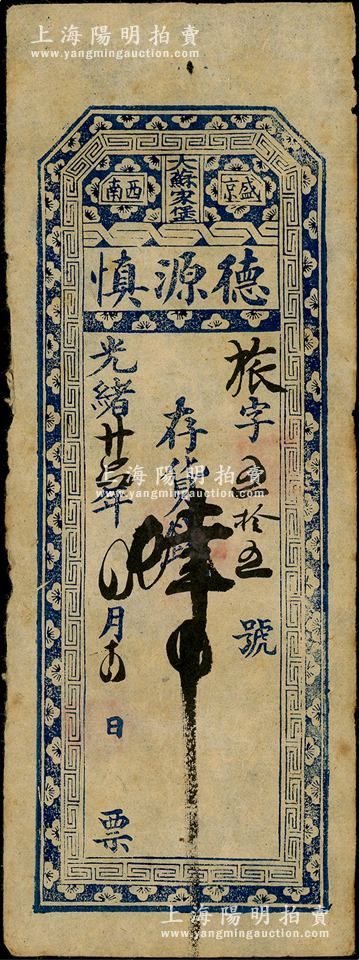 上海陽明拍賣
www.yangmingauction.com
盛京
大蘇家堡
西南
德源慎
旅字五拾五號
存貨
光緒廿五年
月
日
票
上海陽明拍賣
www.yangmingauction.com
上海陽明拍賣
www.yangmingauction.com